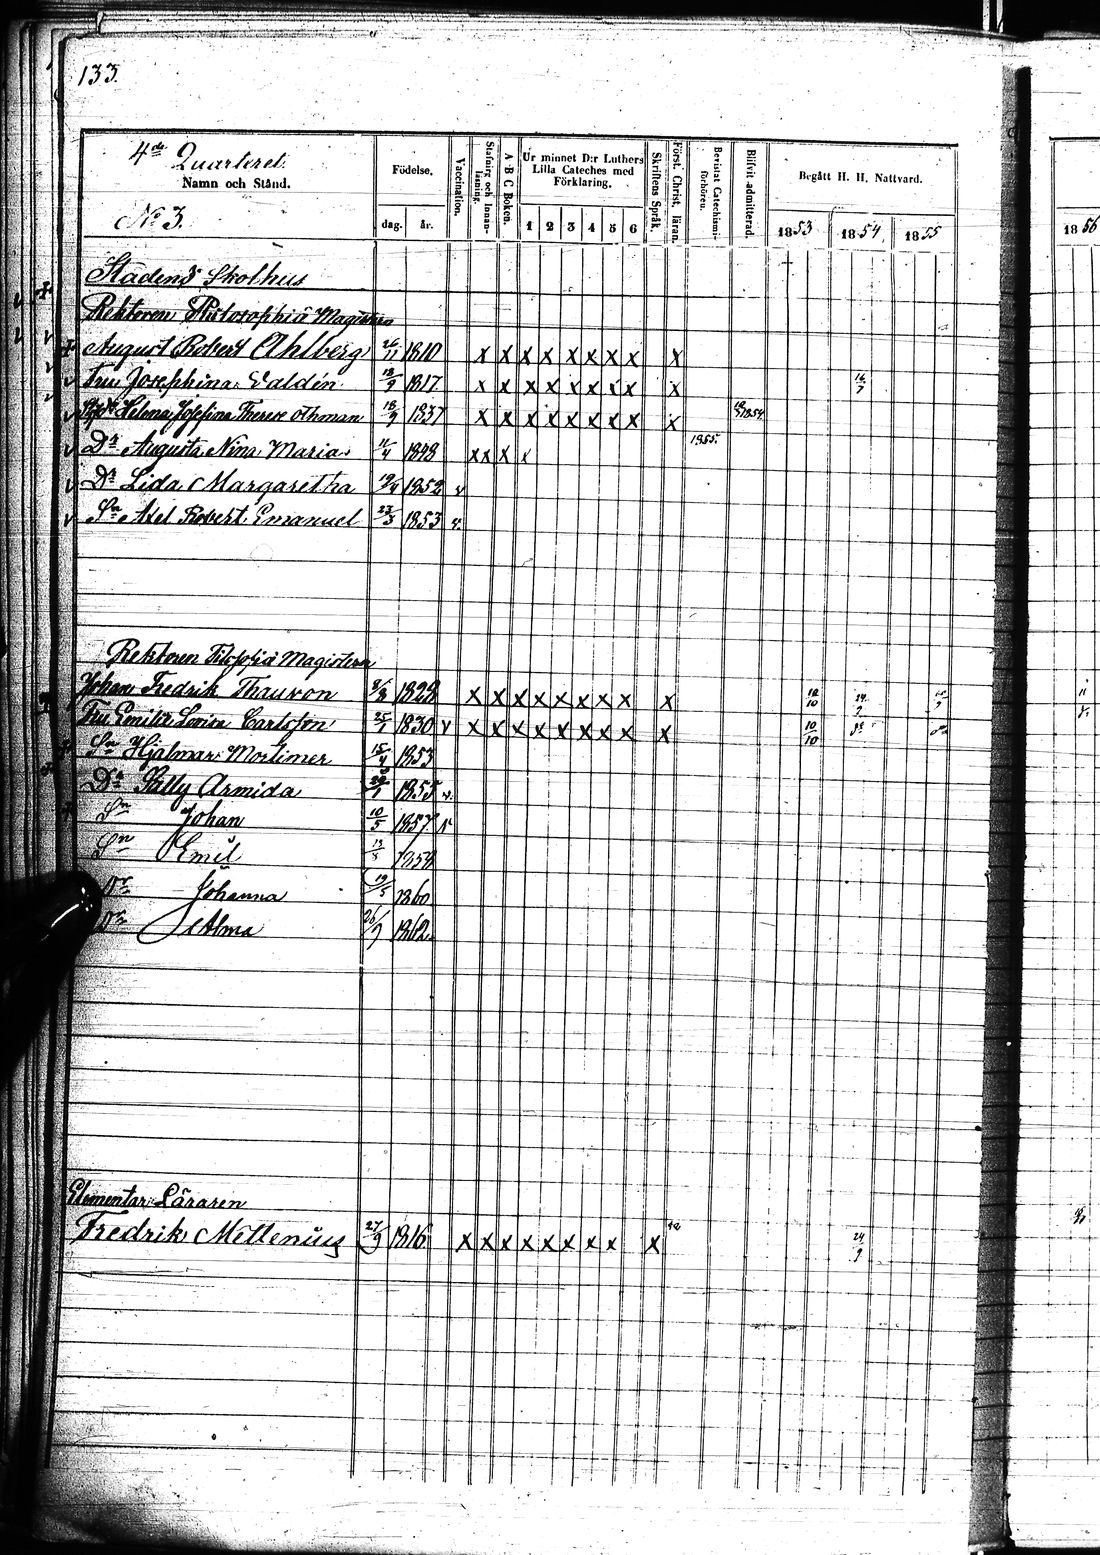 133.
4de Quarteret.
Namn och Stånd.
No 3.
Födelse.
dag. år.
Vaccination.
Stafning och innanläsning.
A B C Boken.
Ur minnet D:r Luthers
Lilla Cateches med
Förklaring.
1 2 3 4 5 6
Skriftens Språk.
Först. Christ. läran.
Bevistat Catechismiförhören.
Blifvit admitterad.
Begått H. H. Nattvard.
1853 1854 1855
1856
Stadens Skolhus
Rektoren Philosophiä Magistern
August Robert Ahlberg 26/11 1810 x x x x x x x x x
Fru Josephina Valdén 18/9 1817 x x x x x x x x x
Helena Josefina Therese Othman 18/9 1837 x x x x x x x x x 1854
Dr Augusta Nina Maria 11/4 1848 x x x x 1855.
Dr Lida Margaretha 19/4 1852 v
Sn Axel Robert Emanuel 23/3 1853 v.
Rektoren Filosofiä Magistern
Johan Fredrik Thauvon 1828 x x x x x x x x x 10/10
Fru Emilia Lovisa Carlsson 1830 v x x x x x x x x x 10/10
Sn Hjalmar Mortimer 15/4 1853
Dr Sally Armida 1855 v.
Sn Johan 10/5 1857 v
Sn Emil 1858
Dr Johanna 19/5 1860
Dr Alma 26/9 1862
Elementar Läraren
Fredrik Mellenius 27/9 1816 x x x x x x x x x 24/9